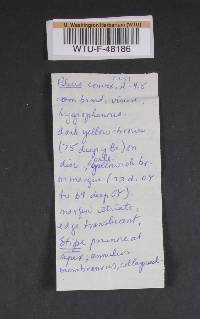 U. Washington Herbarium (WTU)
WTU-F-48186
Pileus convex, 2-4.5
cm broad, viscid,
hygrophanous.
dark yellow-brown
(75 deep y Br) on
disc, yellowish br.
on margin (72 d. OY
to 69 deep OY).
margin striate,
edge translucent,
Stipe pruinose at
apex, annulus
membranous, collapsed